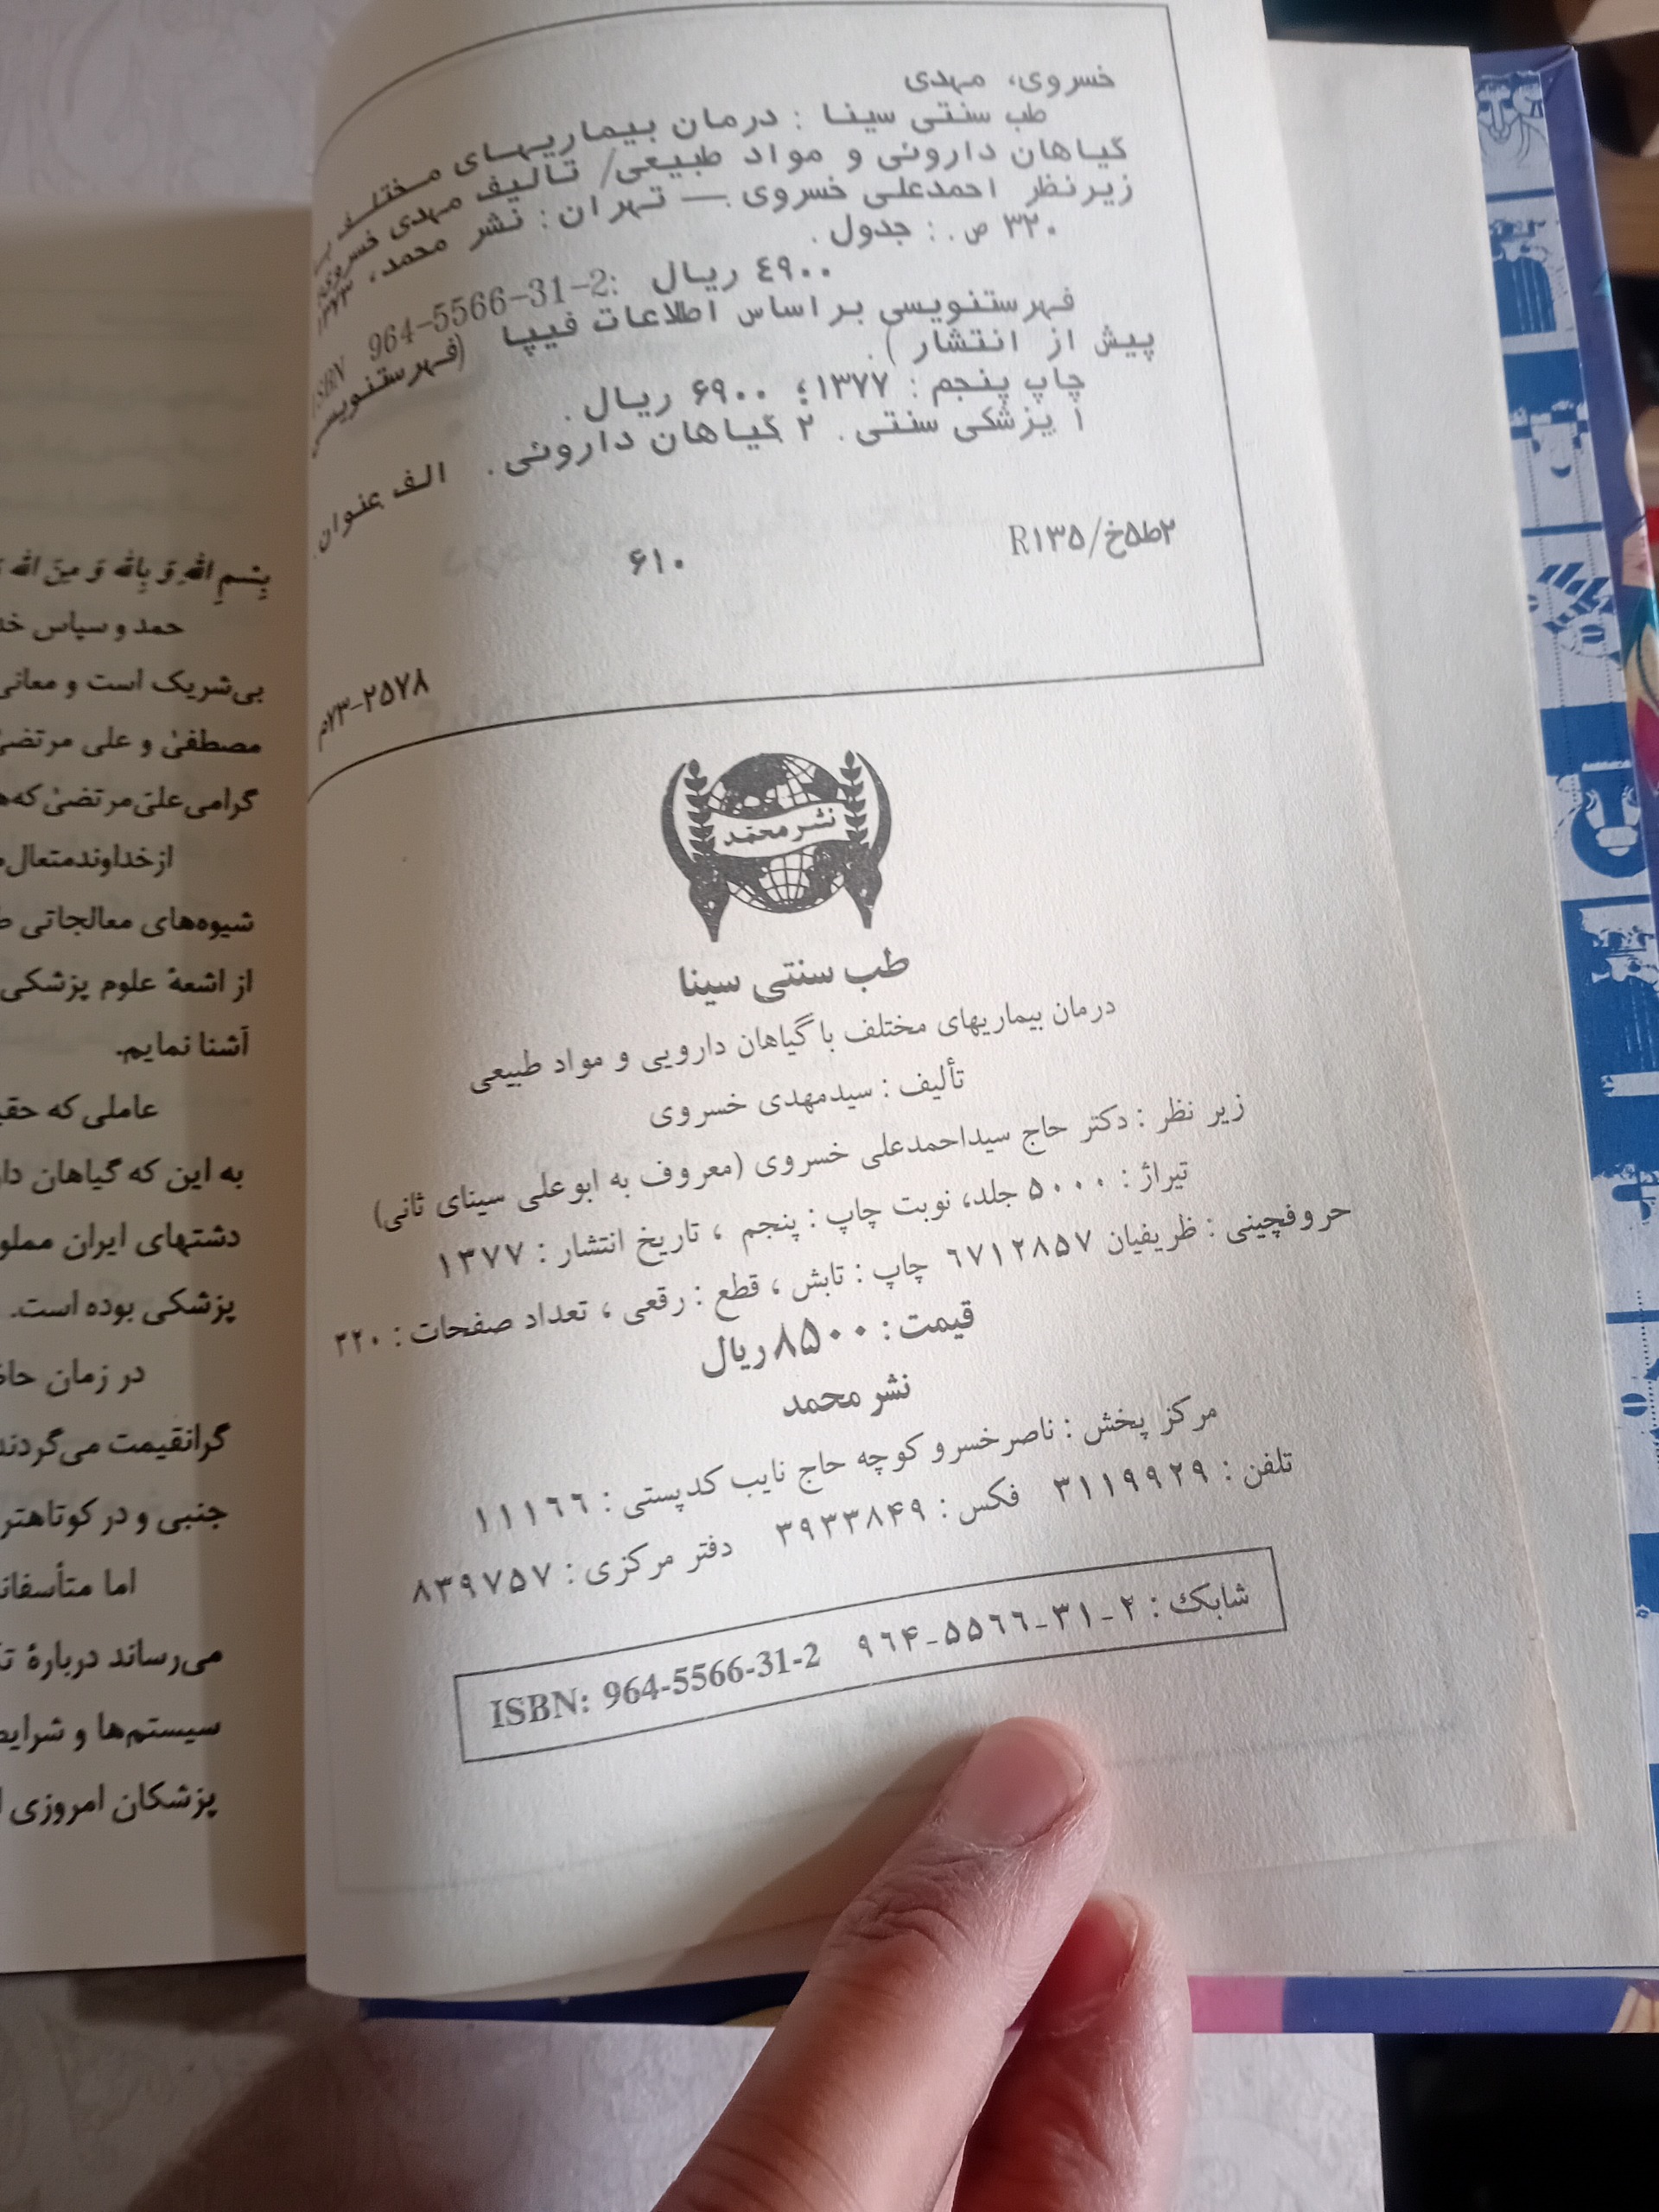 خسروی، مهدی
طب سنتی سینا : درمان بیماریهای مختلف با
گیاهان داروئی و مواد طبیعی/ تالیف مهدی خسروی؛
زیرنظر احمدعلی خسروی .— تهران: نشر محمد، ۱۳۷۳
۳۲۰ ص. : جدول.
ISBN 964-5566-31-2: ۴۹۰۰ ریال
فهرستنویسی براساس اطلاعات فیپا (فهرستنویسی
پیش از انتشار).
چاپ پنجم : ۱۳۷۷؛ ۶۹۰۰ ریال.
۱ پزشکی سنتی. ۲ گیاهان داروئی. الف عنوان.
۲ط۵خ/R۱۳۵
۶۱۰
۷۳-۲۵۷۸م
نشر محمد
طب سنتی سینا
درمان بیماریهای مختلف با گیاهان دارویی و مواد طبیعی
تألیف : سیدمهدی خسروی
زیر نظر : دکتر حاج سیداحمدعلی خسروی (معروف به ابوعلی سینای ثانی)
تیراژ : ۵۰۰۰ جلد، نوبت چاپ : پنجم ، تاریخ انتشار : ۱۳۷۷
حروفچینی : ظریفیان ۶۷۱۲۸۵۷ چاپ : تابش ، قطع : رقعی ، تعداد صفحات : ۳۲۰
قیمت: ۸۵۰۰ ریال
نشر محمد
مرکز پخش : ناصرخسرو کوچه حاج نایب کدپستی : ۱۱۱۶۶
تلفن : ۳۱۱۹۹۲۹ فکس : ۳۹۳۳۸۴۹ دفتر مرکزی : ۸۳۹۷۵۷
شابک : ۲-۳۱-۵۵۶۶-۹۶۴ ISBN: 964-5566-31-2
بِسْمِ اللهِ وَ بِاللهِ وَ مِنَ الله
حمد و سپاس
بی‌شریک است و معانی
مصطفیٰ و علی مرتضیٰ
گرامی علیّ مرتضیٰ که
از خداوند متعال
شیوه‌های معالجاتی
از اشعهٔ علوم پزشکی
آشنا نمایم.
عاملی که
به این که گیاهان
دشتهای ایران مملو
پزشکی بوده است.
در زمان
گرانقیمت می‌گردند
جنبی و در کوتاهتر
اما
می‌رساند دربارهٔ
سیستم‌ها و
پزشکان امروزی